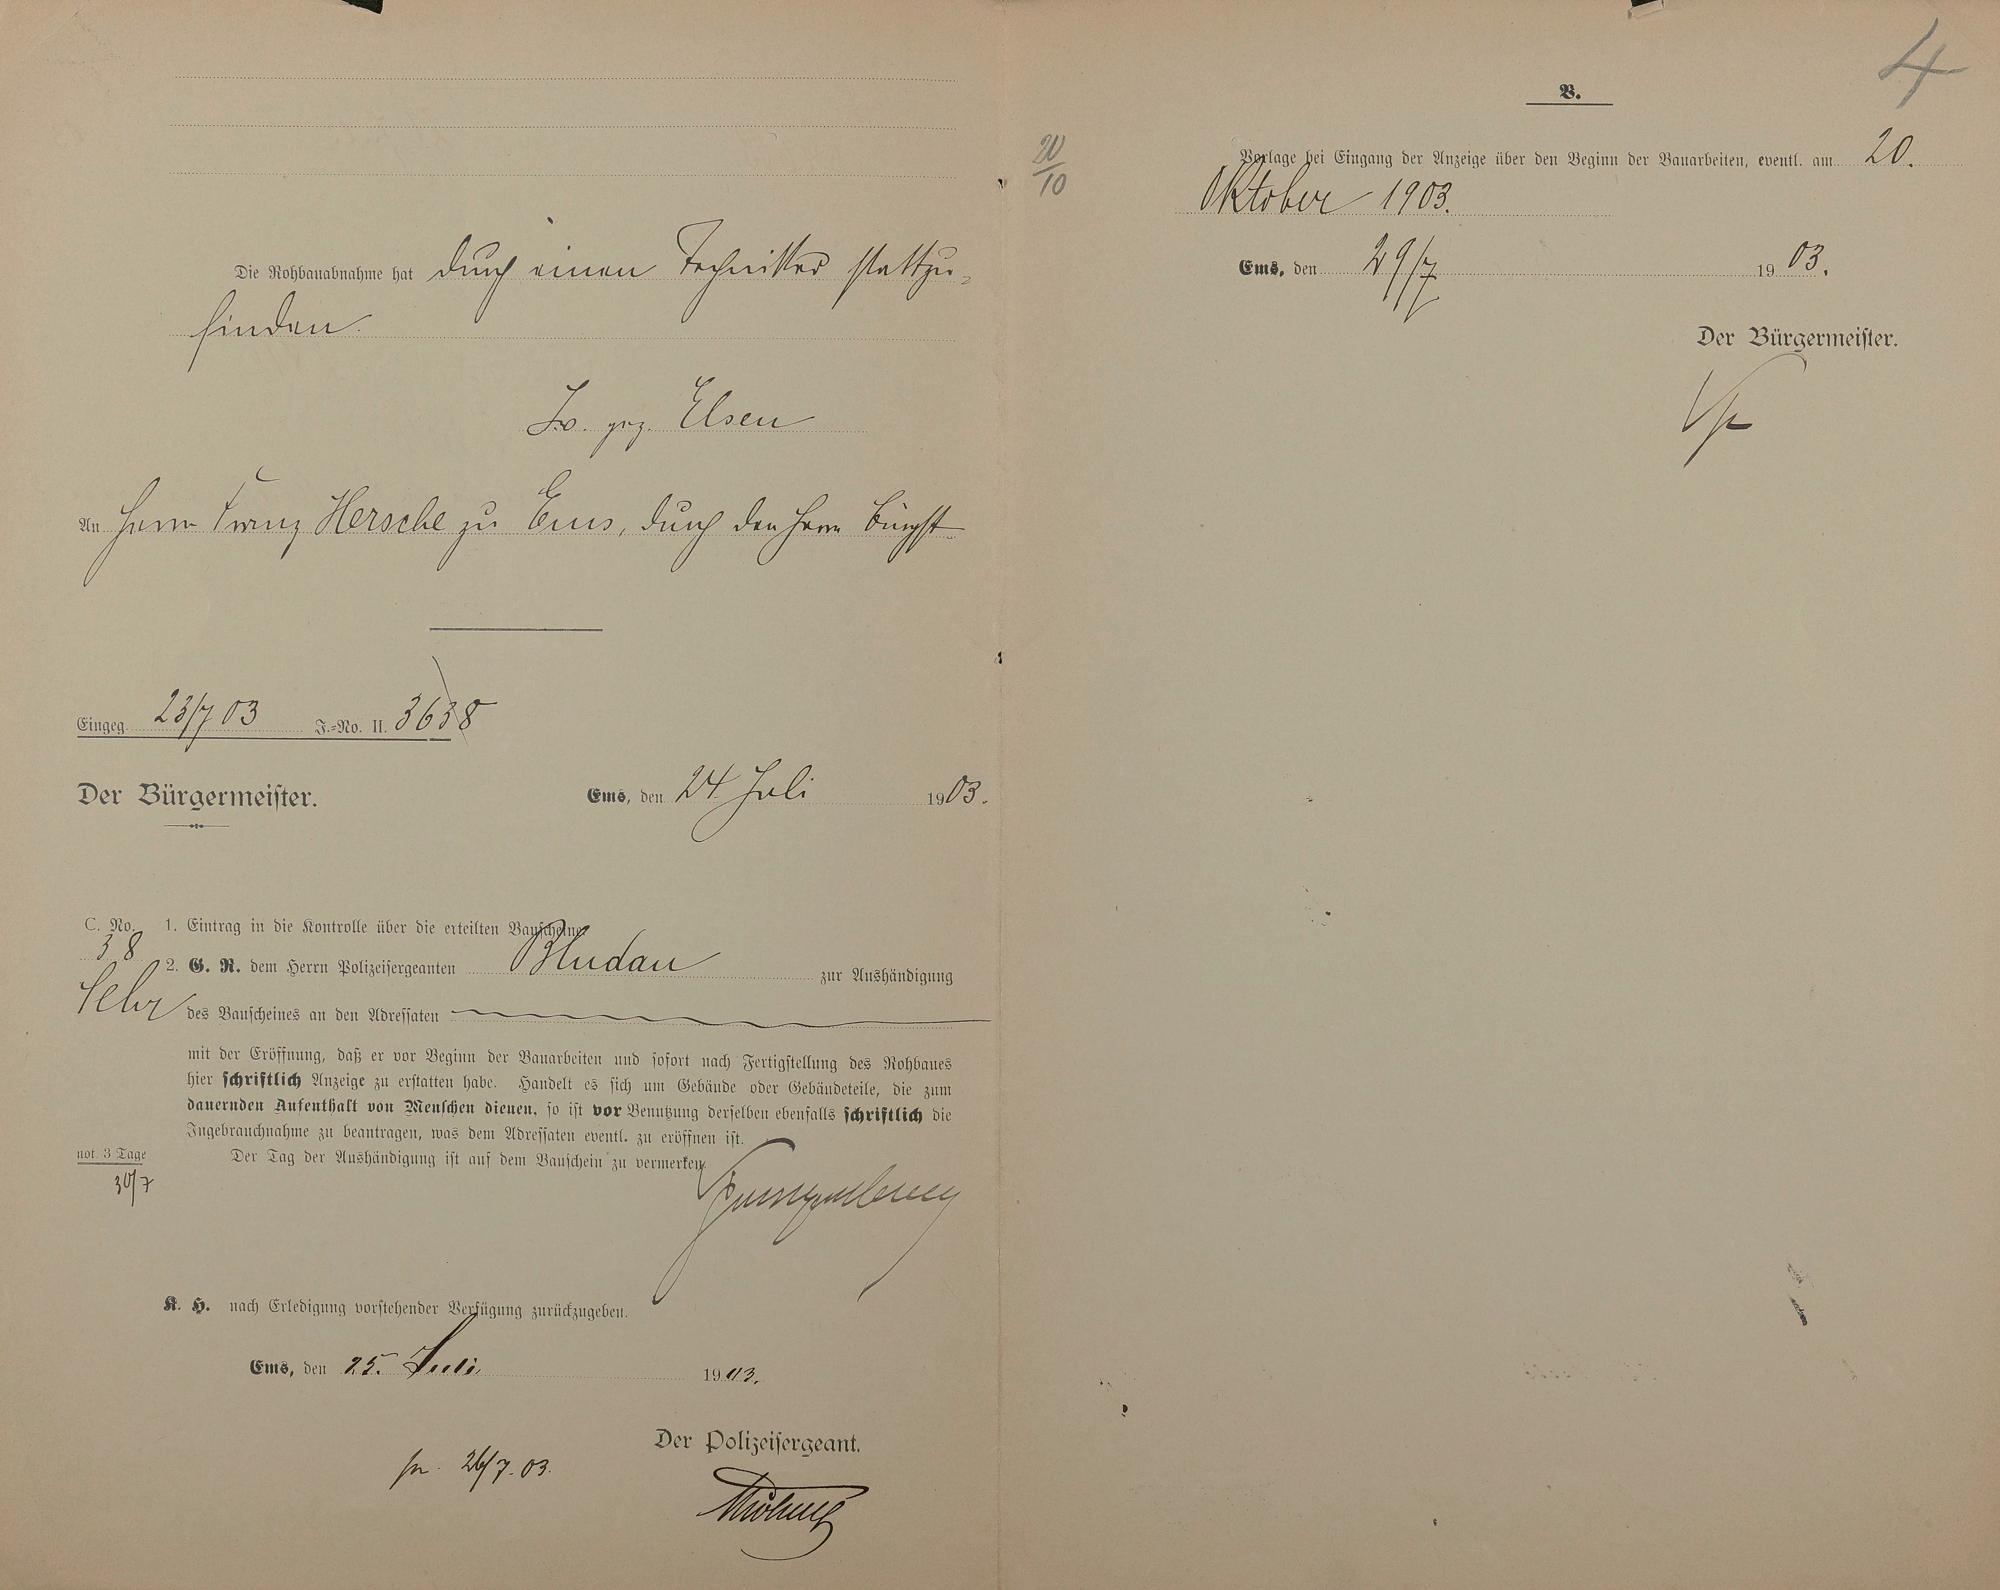 Die Rohbauabnahme hat durch einen Techniker stattzu-
finden.
gez. Elsen
An Herrn Franz Hersche zu Ems, durch den Herrn
Eingeg. 23/7 03 J.-No. II. 3638
Der Bürgermeister. Ems, den 24. Juli 1903.
C. No. 38
1. Eintrag in die Kontrolle über die erteilten Bauscheine
2. G. R. dem Herrn Polizeisergeanten Bludau zur Aushändigung
des Bauscheines an den Adressaten
mit der Eröffnung, daß er vor Beginn der Bauarbeiten und sofort nach Fertigstellung des Rohbaues
hier schriftlich Anzeige zu erstatten habe. Handelt es sich um Gebäude oder Gebäudeteile, die zum
dauernden Aufenthalt von Menschen dienen, so ist vor Benutzung derselben ebenfalls schriftlich die
Ingebrauchnahme zu beantragen, was dem Adressaten eventl. zu eröffnen ist.
Der Tag der Aushändigung ist auf dem Bauschein zu vermerken.
not. 3 Tage
30/7
K. H. nach Erledigung vorstehender Verfügung zurückzugeben.
Ems, den 25. Juli 1903.
Der Polizeisergeant.
pr. 26/7. 03.
4
B.
20/10
Vorlage bei Eingang der Anzeige über den Beginn der Bauarbeiten, eventl. am 20.
Oktober 1903.
Ems, den 29/7 1903.
Der Bürgermeister.